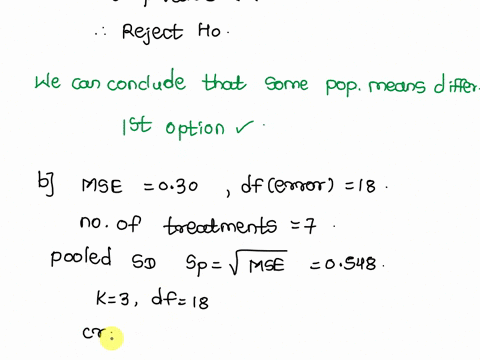 ∴ Reject Ho.
We can conclude that some pop. means differ.
1st option ✓.
b] MSE = 0.30 , df(error) = 18.
no. of treatments = 7.
pooled SD Sp = √MSE = 0.548.
K=3, df=18